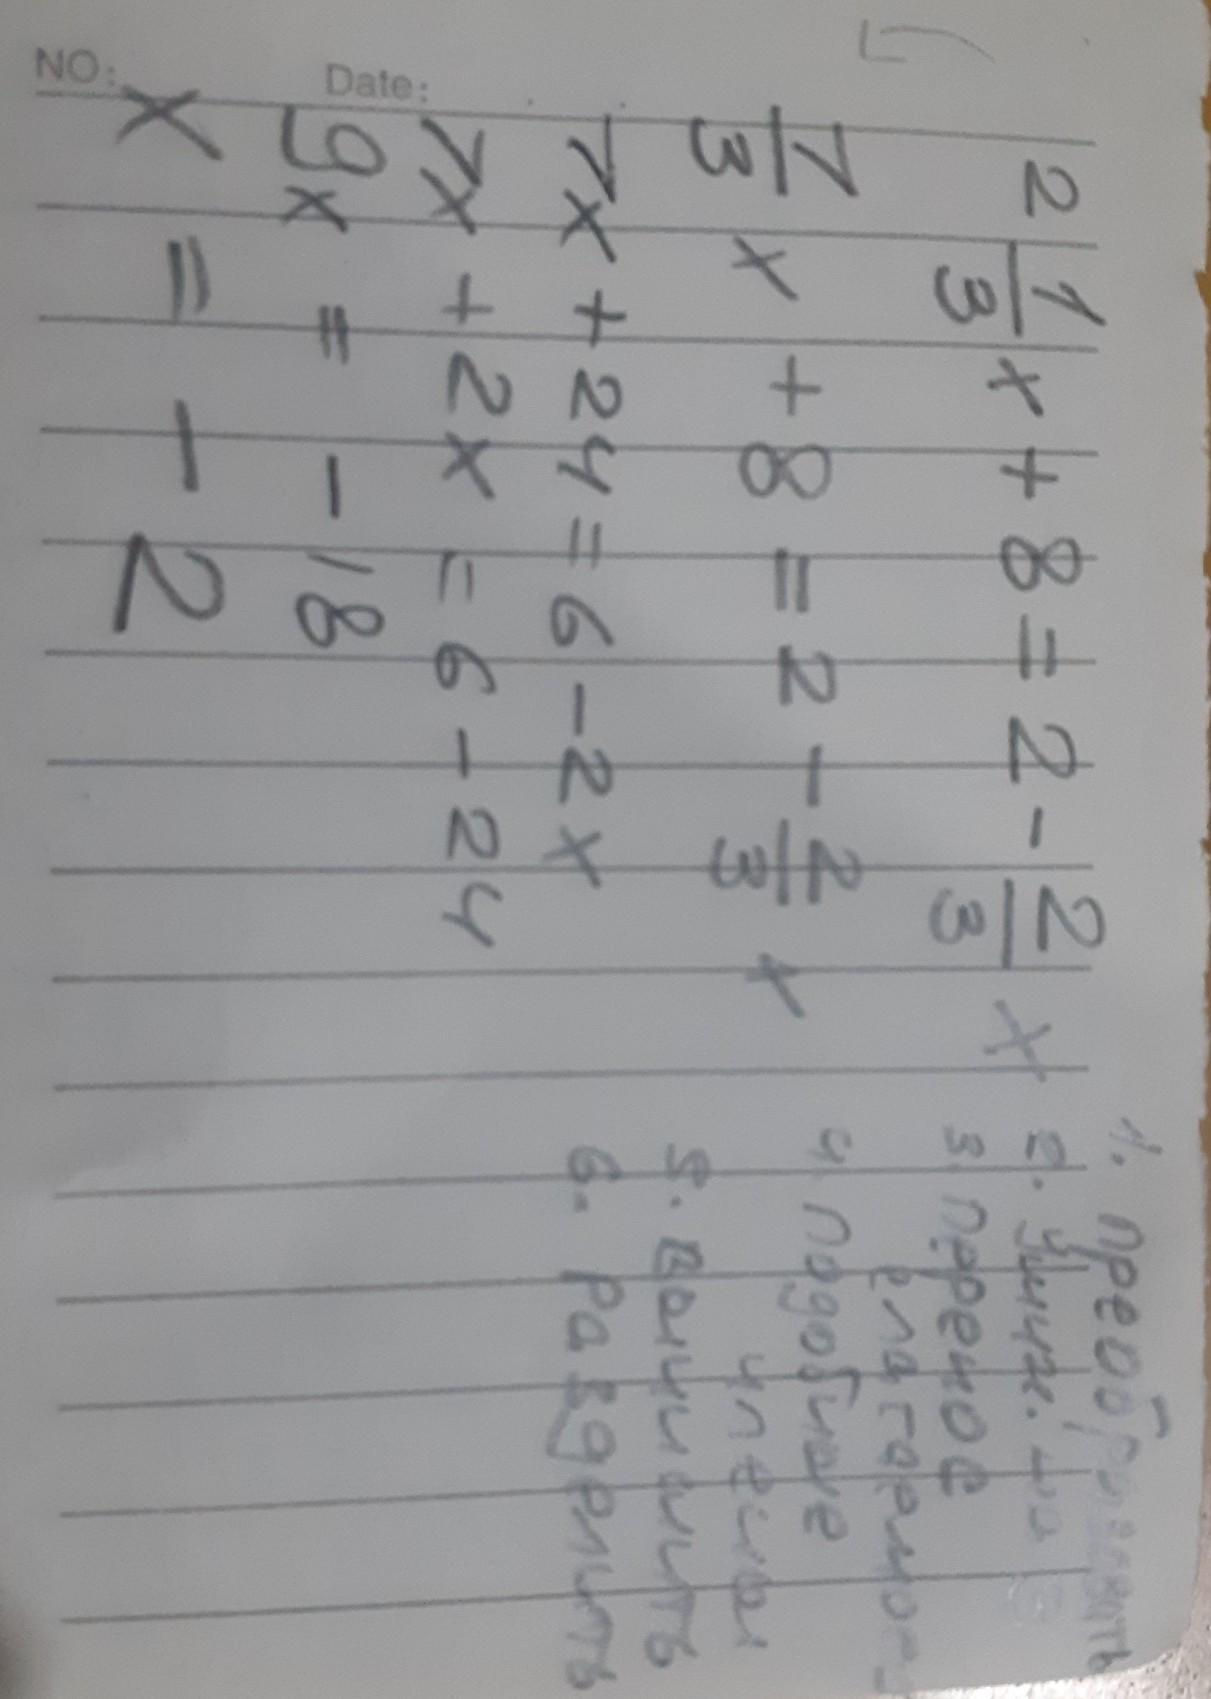 NO:
Date:
2 1/3 x + 8 = 2 - 2/3 x
7/3 x + 8 = 2 - 2/3 x
7x + 24 = 6 - 2x
7x + 2x = 6 - 24
9x = - 18
x = - 2
1.
2. на
3. перенос
слагаемое
4. подобные
члены
5.
6. разделить